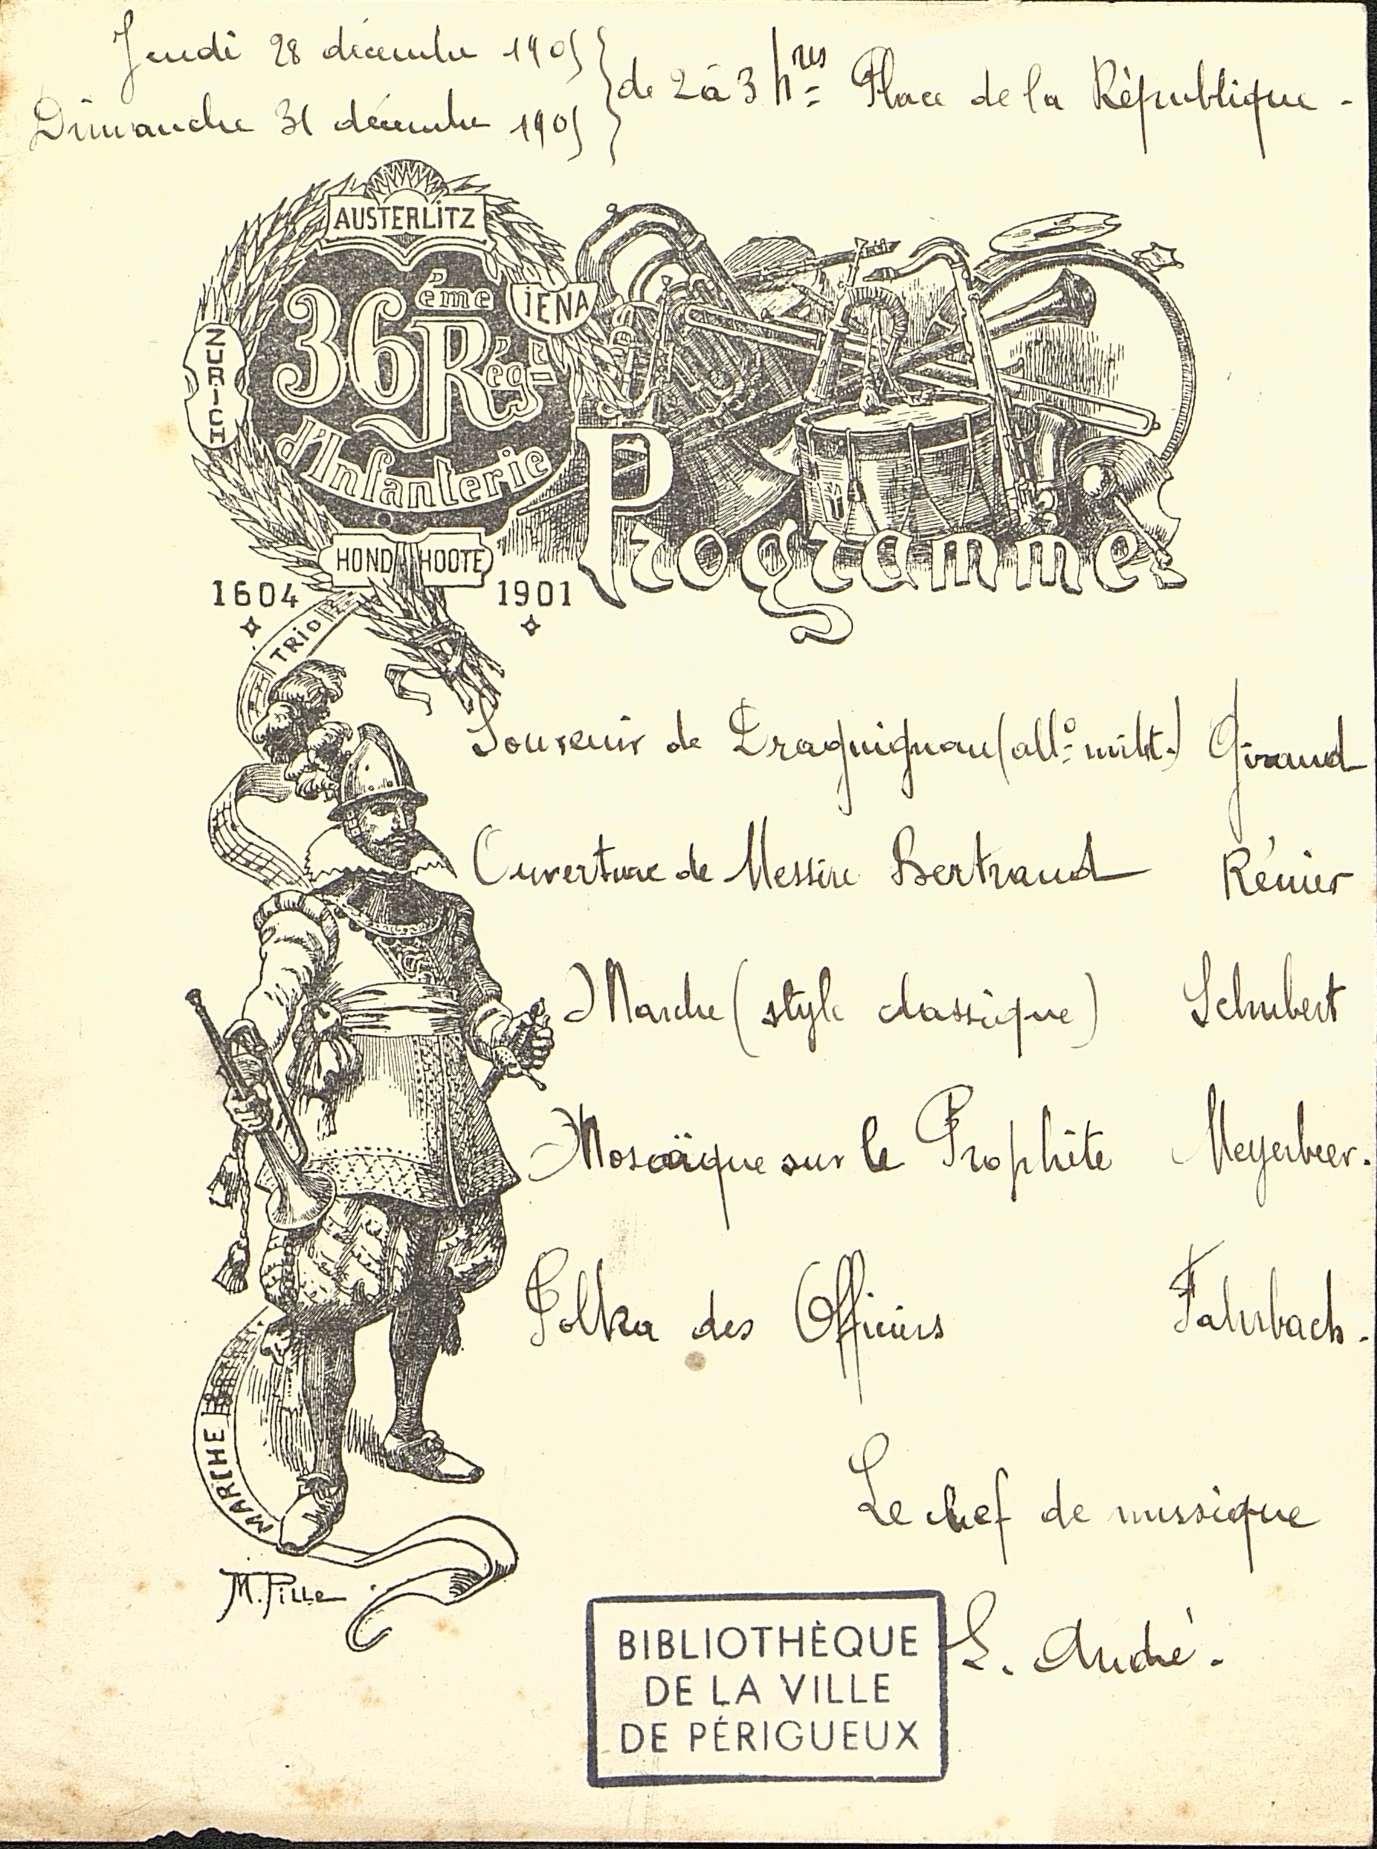 Jeudi 28 décembre 1905
Dimanche 31 décembre 1905
} de 2 à 3 hres Place de la République -
AUSTERLITZ
36ème Régt
d'Infanterie
IENA
ZURICH
HONDSHOOTE
1604
1901
Programme
TRIO
Souvenir de Draguignan (allo milit.) Giraud
Ouverture de Messire Bertrand Rénier
Marche (style classique) Schubert
Mosaïque sur le Prophète Meyerbeer.
Polka des Officiers Fahrbach.
MARCHE
Le chef de musique
M. PILLE
BIBLIOTHÈQUE
DE LA VILLE
DE PÉRIGUEUX
L. André.